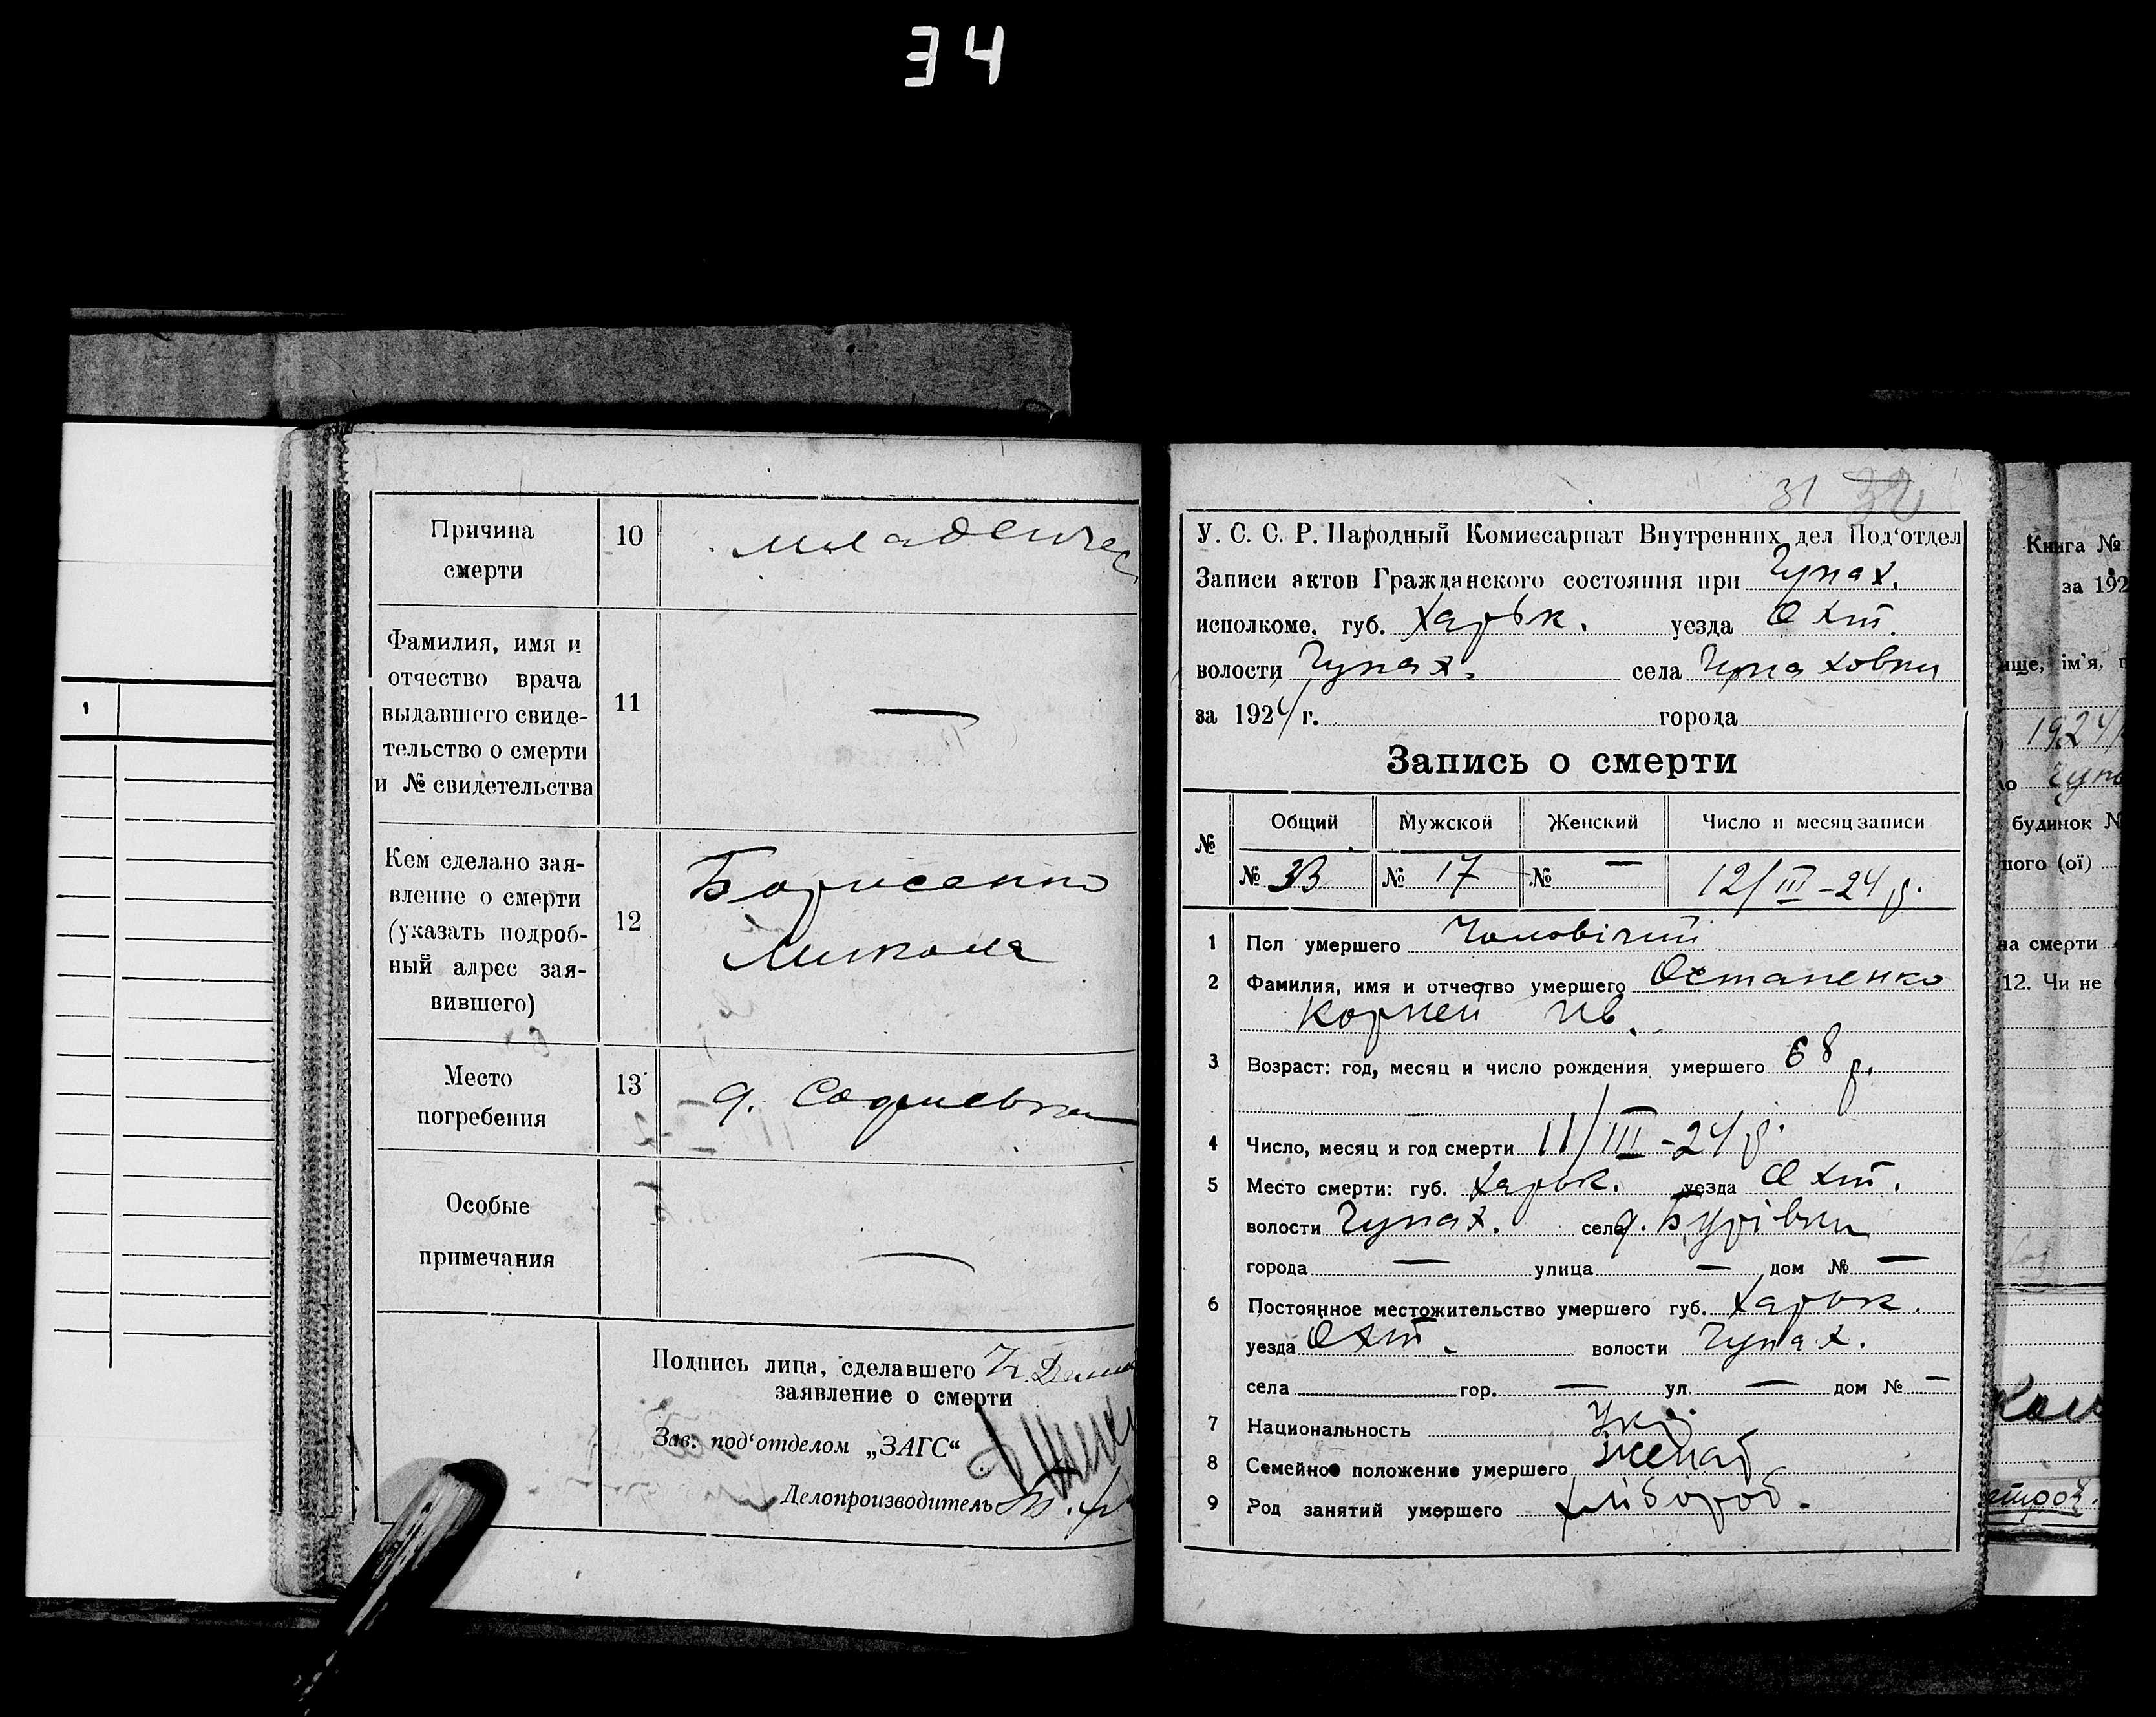 34
1
Причина
смерти
10
младенчес
Фамилия, имя и
отчество врача
выдавшего свиде-
тельство о смерти
и № свидетельства
11
—
Кем сделано зая-
вление о смерти
(указать подроб-
ный адрес зая-
вившего)
12
Борисенко
Микола
Место
погребения
13
д.
Особые
примечания
—
Подпись лица, сделавшего
заявление о смерти
Зав. под‘отделом „ЗАГС“
Делопроизводитель
31 32
У. С. С. Р. Народный Комиссариат Внутренних дел Под‘отдел
Записи актов Гражданского состояния при Чупах.
исполкоме. губ. Харьк. уезда Охт.
волости Чупах. села Чупаховки
за 1924 г. города
Запись о смерти
№ Общий Мужской Женский Число и месяц записи
№ 33 № 17 № — 12/III-24 р.
1 Пол умершего Чоловічий
2 Фамилия, имя и отчество умершего Остапенко
Корней Ив.
3 Возраст: год, месяц и число рождения умершего 68 р.
4 Число, месяц и год смерти 11/III-24 р.
5 Место смерти: губ. Харьк. уезда Охт.
волости Чупах. села д. Бурівки
города — улица — дом № —
6 Постоянное местожительство умершего губ. Харьк.
уезда Охт. волости Чупах.
села гор. — ул. — дом № —
7 Национальность Укр.
8 Семейное положение умершего женат
9 Род занятий умершего хлібороб.
Книга №
за 192
ище, ім’я, п
1924
о Чупа
будинок №
ного (ої)
на смерти
12. Чи не